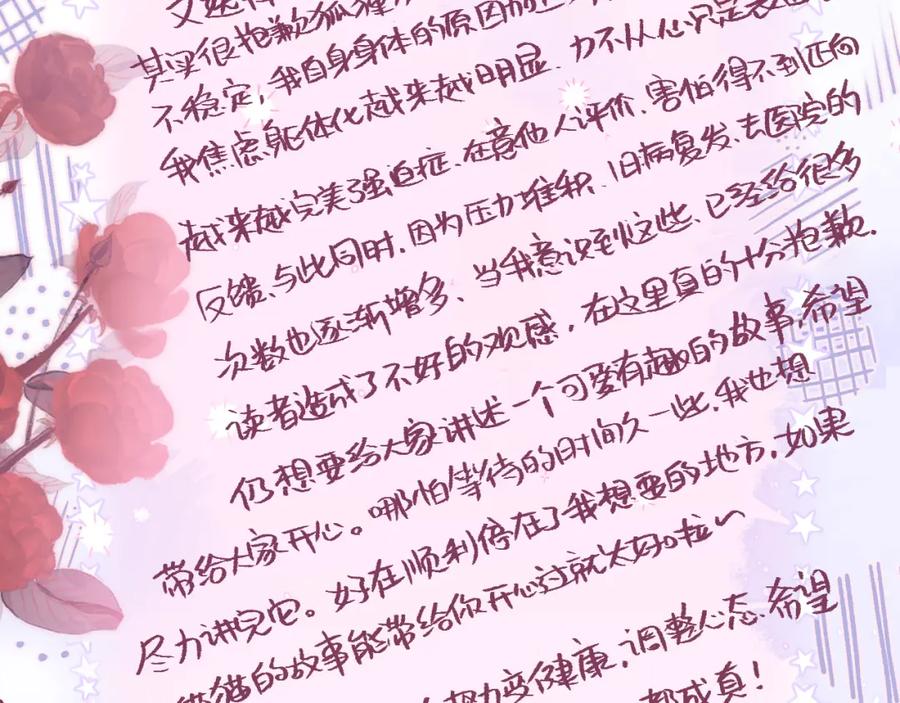 其实很抱歉狐狸
不稳定，我自身身体的原因加
我焦虑躯体化越来越明显、力不从心只是表
越来越完美强迫症、在意他人评价、害怕得不到正向
反馈、与此同时，因为压力堆积、旧病复发、去医院的
次数也逐渐增多、当我意识到这些、已经给很多
读者造成了不好的观感，在这里真的十分抱歉.
仍想要给大家讲述一个可爱有趣的故事，希望
带给大家开心。哪怕等待的时间久一些，我也想
尽力讲完它。好在顺利停在了我想要的地方，如果
猫的故事能带给你开心过就太好啦～
努力变健康，调整心态、希望
都成真！